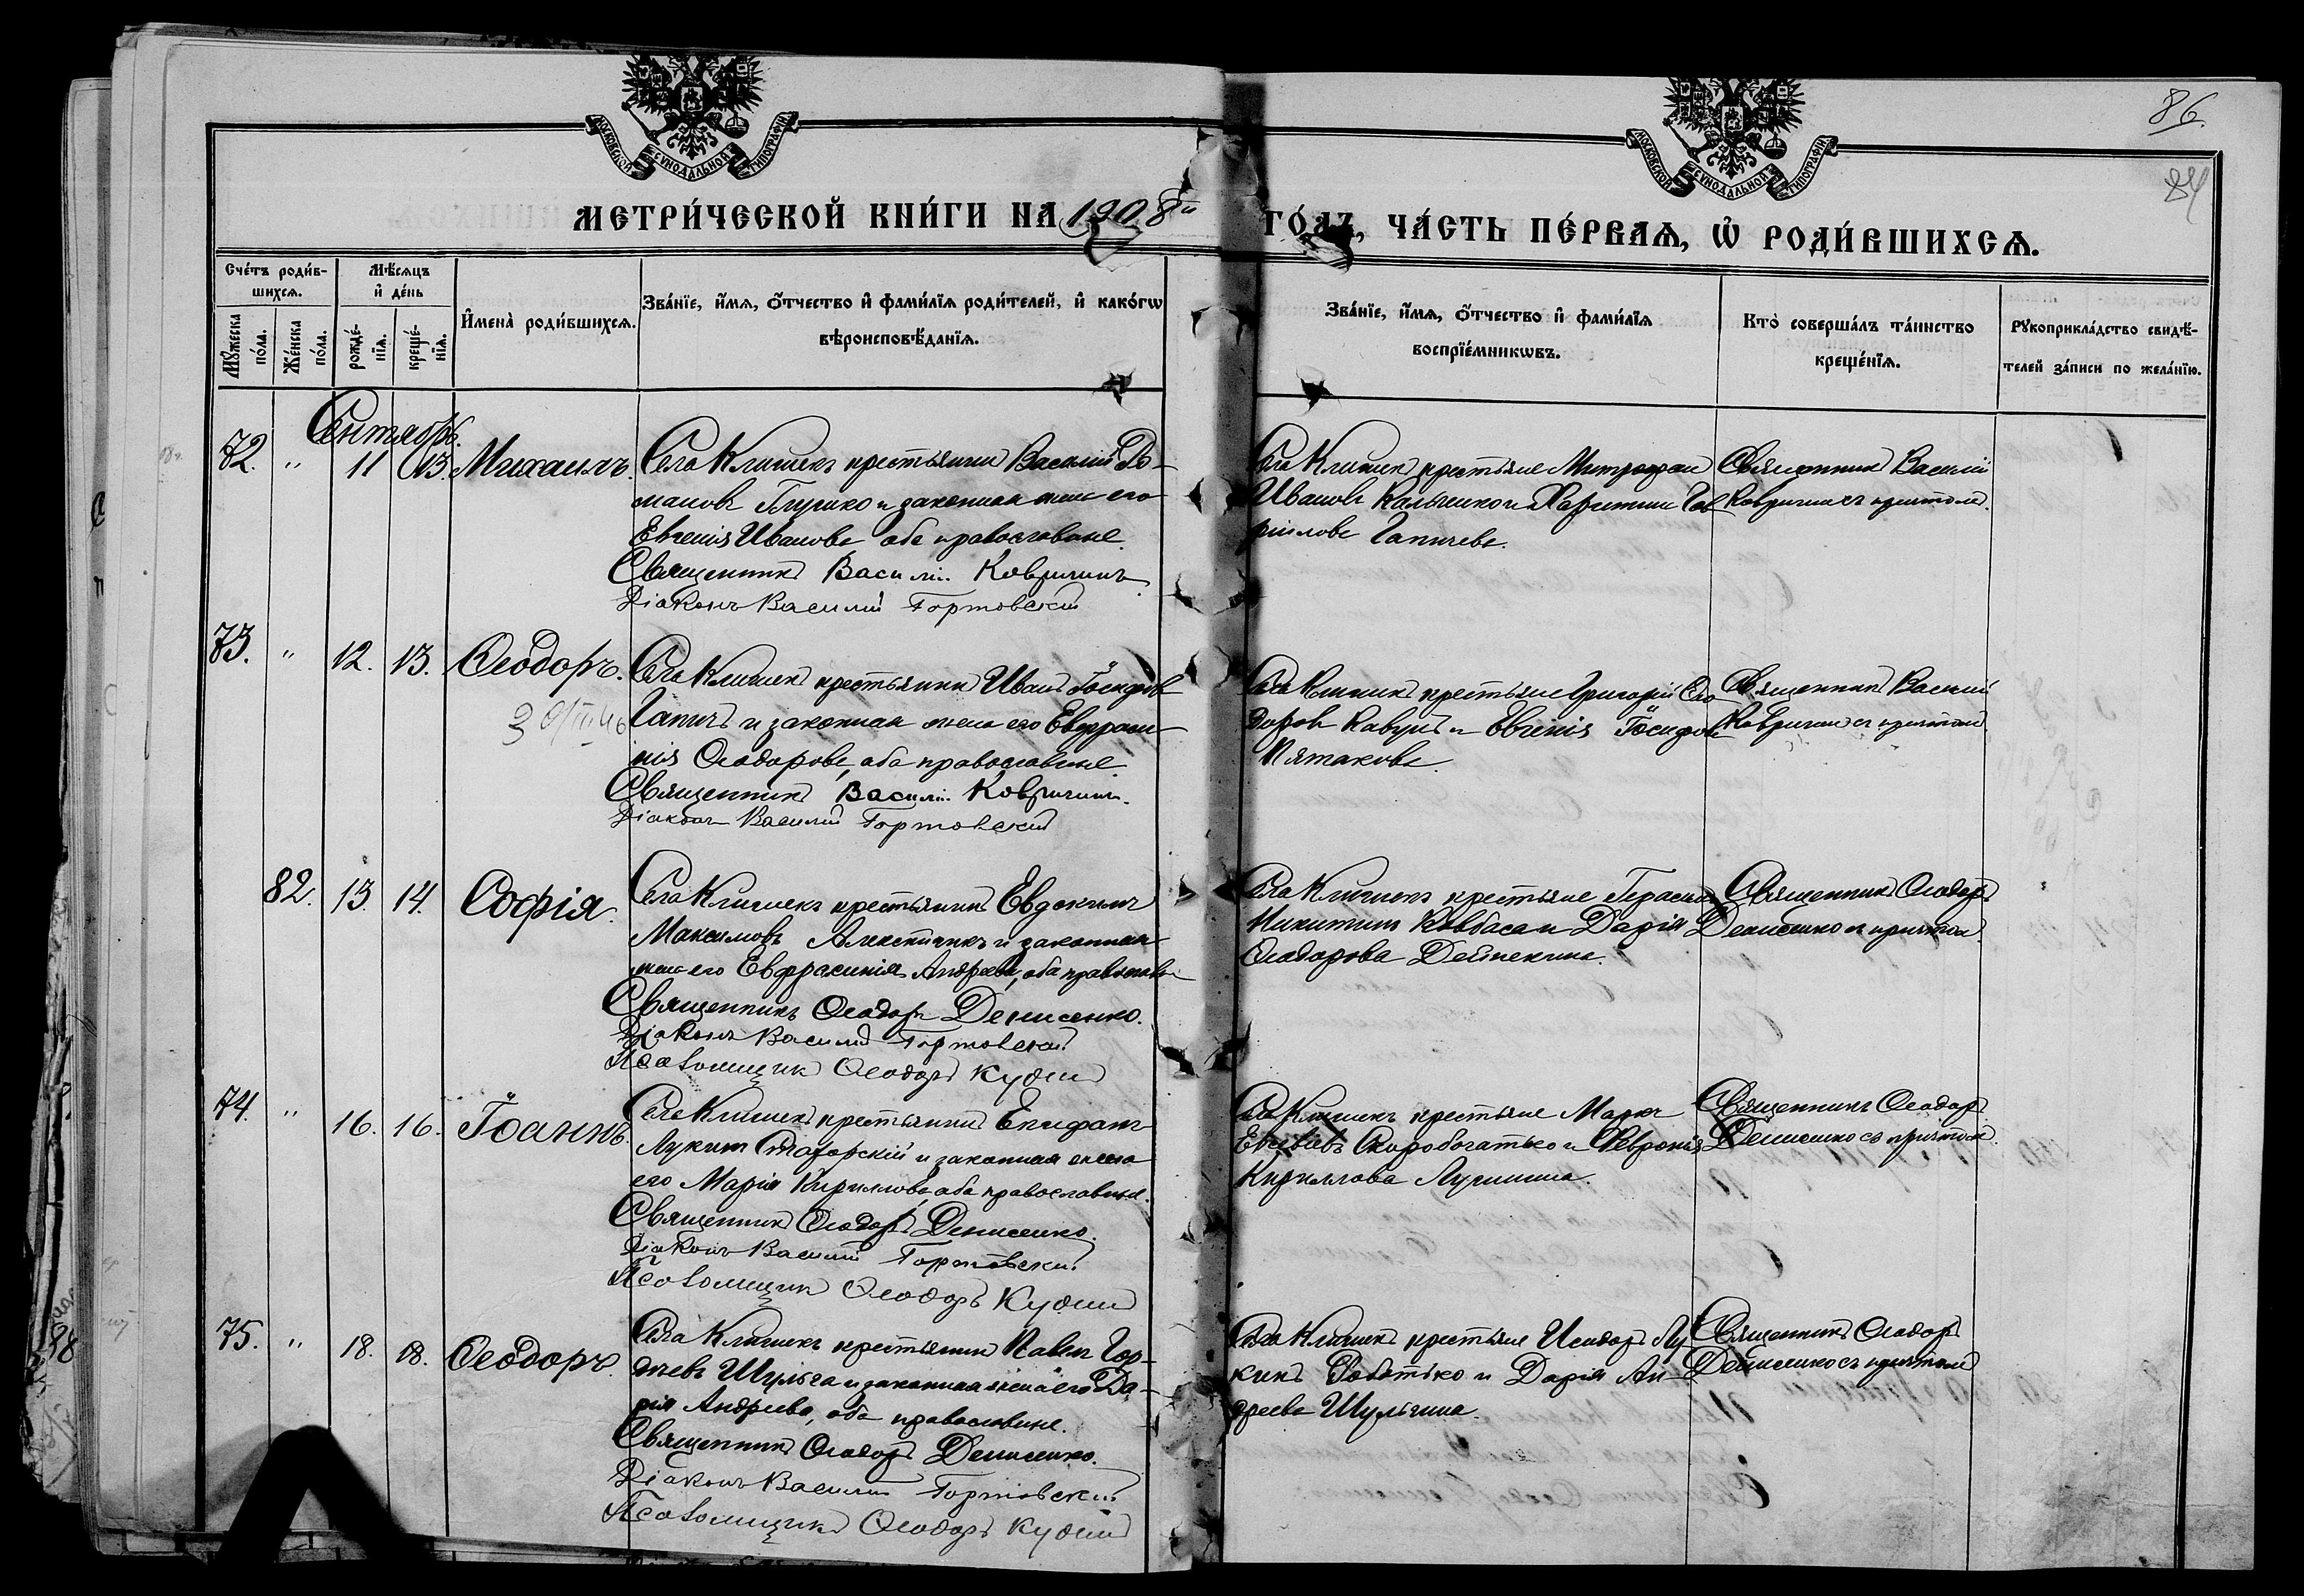 МОСКОВСКОЙ СѴНОДАЛЬНОЙ ТИПОГРАФІИ
МОСКОВСКОЙ СѴНОДАЛЬНОЙ ТИПОГРАФІИ
86.
84
МЕТРИ́ЧЕСКОЙ КНИ́ГИ НА 1908й ГО́ДЪ, ЧА́СТЬ ПЕ́РВАѦ, Ѡ РОДИ́ВШИХСѦ.
Сче́тъ роди́в-
шихсѧ.
Мꙋ́жеска по́ла.
Же́нска по́ла.
Мѣ́сѧцъ
и҆ де́нь
рожде́-
нїѧ.
креще́-
нїѧ.
И҆мена̀ роди́вшихсѧ.
Зва́нїе, и҆́мѧ, ѻ҆́тчество и҆ фами́лїѧ роди́телей, и҆ како́гѡ
вѣроисповѣ́данїѧ.
Зва́нїе, и҆́мѧ, ѻ҆́тчество и҆ фами́лїѧ
воспрїе́мникѡвъ.
Кто̀ соверша́лъ та́инство
креще́нїѧ.
Рꙋкоприкла́дство свидѣ́-
телей за́писи по жела́нїю.
Сентябрь.
72. " 11 13. Михаилъ.
Села Клишекъ крестьянинъ Василій Ро-
мановъ Глушко и законная жена его
Евгенія Иванова, оба православные.
Священникъ Василій Ковригинъ.
Діаконъ Василій Гортовскій
Села Клишекъ крестьяне Митрофан
Ивановъ
и Харитина Гав
рiилова Гапичева.
Священникъ Василій
Ковригинъ съ причтомъ.
73. " 12. 13. Ѳеодоръ.
Села Клишекъ крестьянинъ Иванъ Іосифовъ
Гапичъ и законная жена его Евфроси-
нія Ѳеодорова, оба православные.
Священникъ Василій Ковригинъ.
Діаконъ Василій Гортовскій
Села Клишекъ крестьяне Григорій Ѳео
доровъ Кавунъ и Евгенія Іосифова
Пятакова.
Священникъ Василій
Ковригинъ съ причтомъ
82. 13. 14. Софія.
Села Клишекъ крестьянинъ Евдокимъ
Максимовъ и законная
жена его Евфросинія Андреева, оба православн
Священникъ Ѳеодоръ Денисенко.
Діаконъ Василій Гортовскій
Псаломщикъ Ѳеодоръ Кудин
Села Клишекъ крестьяне Герасимъ
Никитинъ Ковбаса и Дарія
Ѳеодорова Дейнекина.
Священникъ Ѳеодоръ
Денисенко съ причтом.
74. " 16. 16. Іоаннъ.
Села Клишекъ крестьянинъ Епифанъ
Лукинъ и законная жена
его Марія Кириллова, оба православные.
Священникъ Ѳеодоръ Денисенко.
Діаконъ Василій Гортовскій
Псаломщикъ Ѳеодоръ Кудин
Села Клишекъ крестьяне Маркъ
Скоробогатько и Февронія
Кириллова Лугинина.
Священникъ Ѳеодоръ
Денисенко съ причтом.
75. " 18. 18. Ѳеодоръ.
Села Клишекъ крестьянинъ Павелъ Гор-
діевъ Шульга и законная жена его Да-
рія Андреева, оба православные.
Священникъ Ѳеодоръ Денисенко.
Діаконъ Василій Гортовскій
Псаломщикъ Ѳеодоръ Кудин
Села Клишекъ крестьяне Исидоръ Лу
кинъ и Дарія Ан-
дреева Шульгина.
Священникъ Ѳеодоръ
Денисенко съ причтом